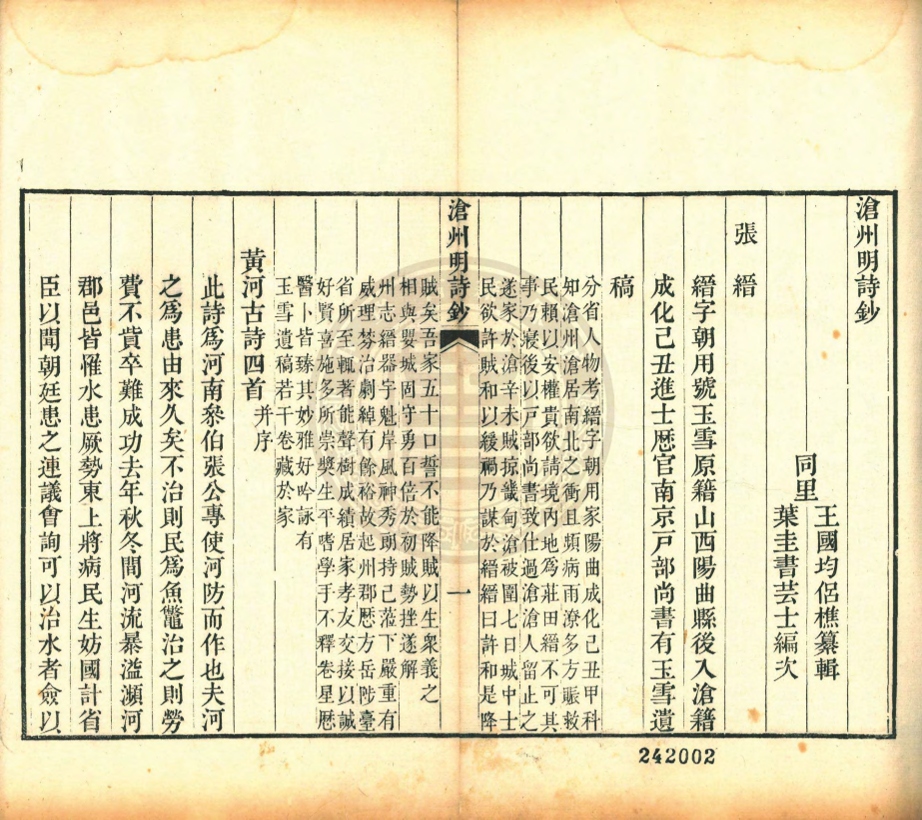 滄州明詩鈔
同里
王國均侶樵纂輯
葉圭書芸士編次
張縉
縉字朝用號玉雪原籍山西陽曲縣後入滄籍
成化己丑進士歷官南京戸部尚書有玉雪遺
稿
分省人物考縉字朝用家陽曲成化己丑甲科
知滄州滄居南北之衝且頻病雨潦多方賑救
民賴以安權貴欲請境內地為莊田縉不可其
事乃寢後以戸部尚書致仕過滄滄人留止之
遂家於滄辛未賊掠畿甸滄被圍七日城中士
民欲許賊和以緩禍乃謀於縉縉曰許和是降
滄州明詩鈔
一
賊矣吾家五十口誓不能降賊以生衆義之
相與嬰城固守勇百倍於初賊勢挫遂解
州志縉器宇魁岸風神秀朗持己蒞下嚴重有
威理棼治劇綽有餘裕故起州郡歷方岳陟臺
省所至輒著能聲樹成績居家孝友交接以誠
好賢喜施多所崇獎生平嗜學手不釋卷星歷
醫卜皆臻其妙雅好吟詠有
玉雪遺稿若干卷藏於家
黃河古詩四首并序
此詩為河南叅伯張公專使河防而作也夫河
之為患由來久矣不治則民為魚鼈治之則勞
費不貲卒難成功去年秋冬間河流暴溢瀕河
郡邑皆懼水患厥勢東上將病民生妨國計省
臣以聞朝廷患之連議會詢可以治水者僉以
242002